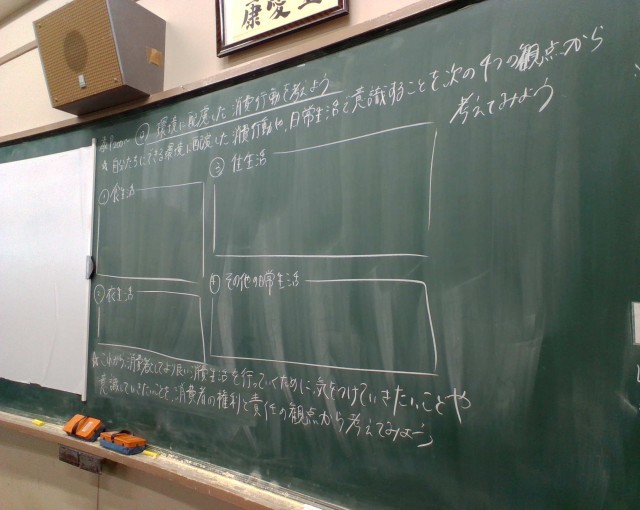 康愛
環境に配慮した消費行動を考えよう
自分たちにできる環境に配慮した消費行動や、日常生活で意識することを次の4つの観点から
考えてみよう
食生活
住生活
衣生活
④ その他の日常生活
これから、消費者としてより良い消費生活を行っていくために気をつけていきたいことや
意識していきたいことを、消費者の権利と責任の観点から考えてみよう